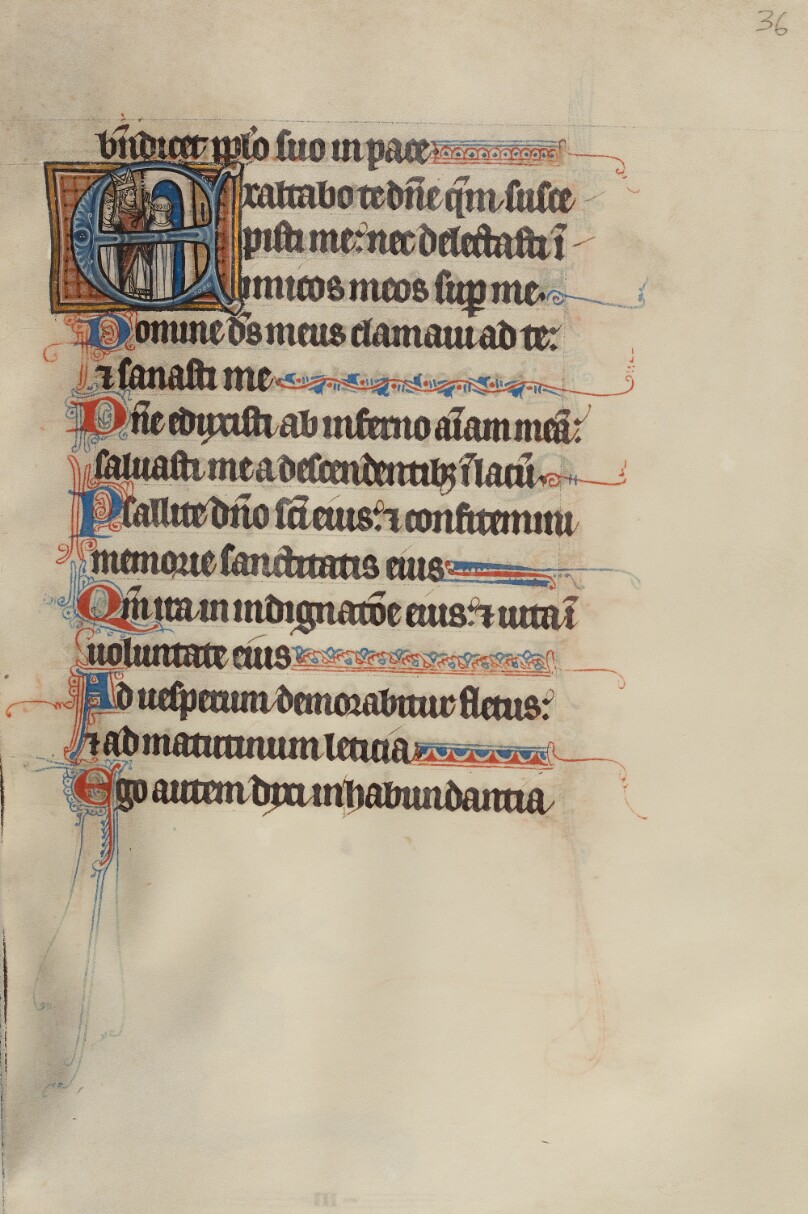 36
bn̄dicet pplo suo in pace
Exaltabo te dn̄e qm̄ susce
pisti me: nec delectasti ī
imicos meos sup me.
Domine ds̄ meus clamaui ad te:
⁊ sanasti me
Dn̄e eduxisti ab inferno aīam meā:
saluasti me a descendentibꝫ ī lacū.
Psallite dn̄o scī eius: ⁊ confitemini
memorie sanctitatis eius
Qm̄ ira in indignatōe eius: ⁊ uita ī
uoluntate eius
Ad uesperum demorabitur fletus:
⁊ ad matutinum leticia
Ego autem dixi in habundantia